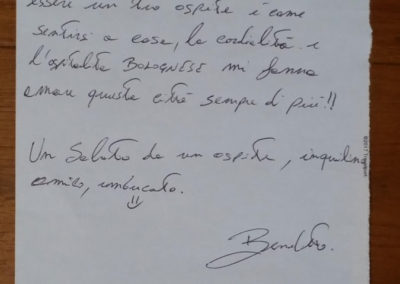 essere un tuo ospite è come
sentirsi a casa, la cordialità e
l'ospitalità BOLOGNESE mi fanno
amare questa città sempre di più!!
Un Saluto da un ospite, inquilino
amico, imbucato.